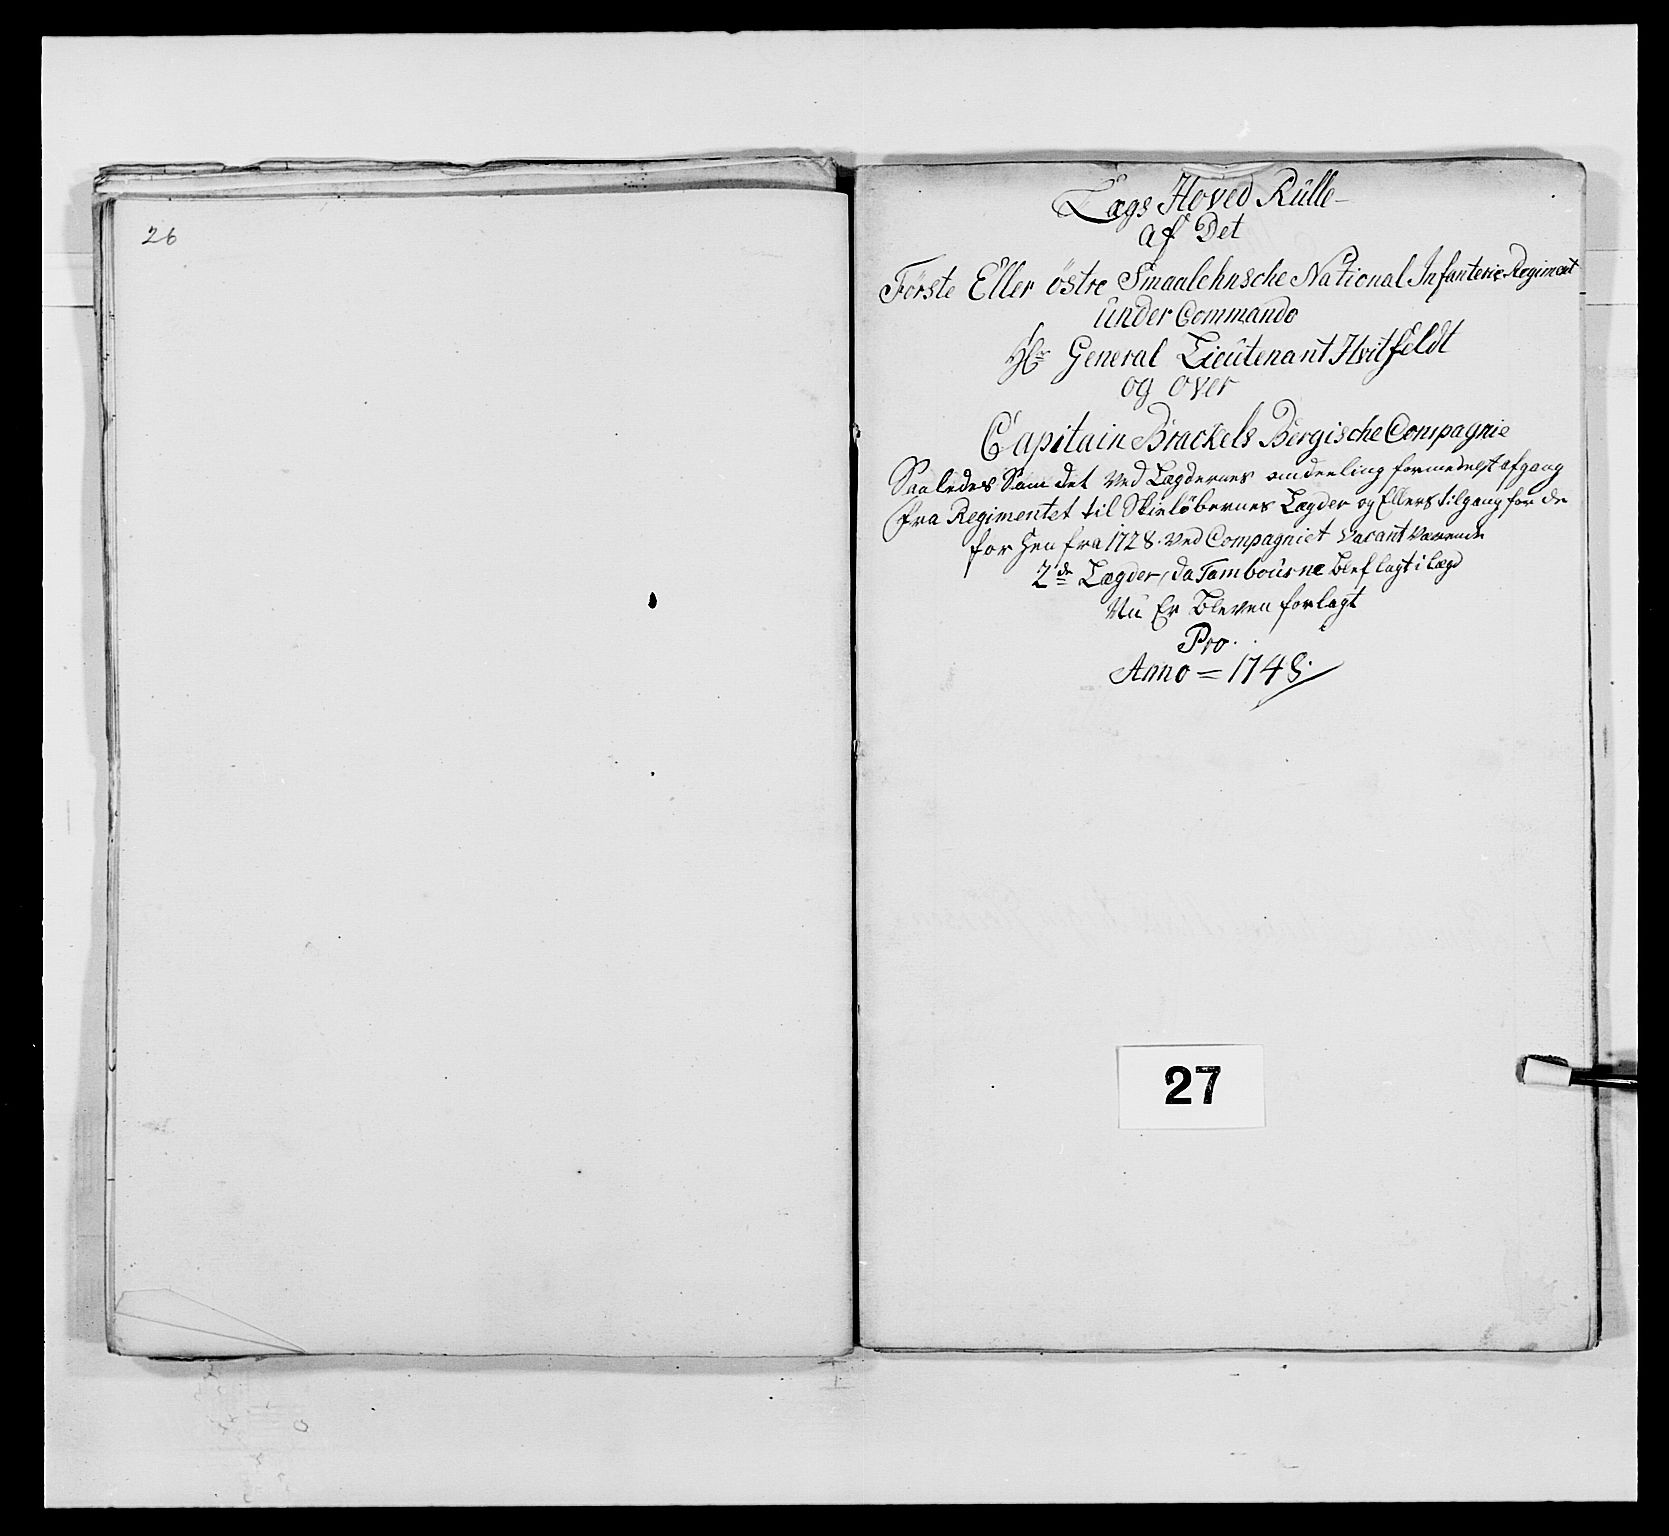 26
Lægs Hoved Rülle
af Det
Förste Eller östre Smaalehnsche National Infanterie Regiment
ünder Commando
Hr General Lieütenant Hvitfeldt
og over
Capitain Brackels Bergische Compagnie
Saaledes Som det ved Lægdernes omdeeling formedelst afgang
fra Regimentet til Skielöbernes Lægder og Ellers tilgang for de
for hen fra 1728. ved Compagniet Vacant værende
2de Lægder, da Tamboürne blef lagt i læg
Nü Er bleven forlagt
Pro.
Anno = 1748.
27